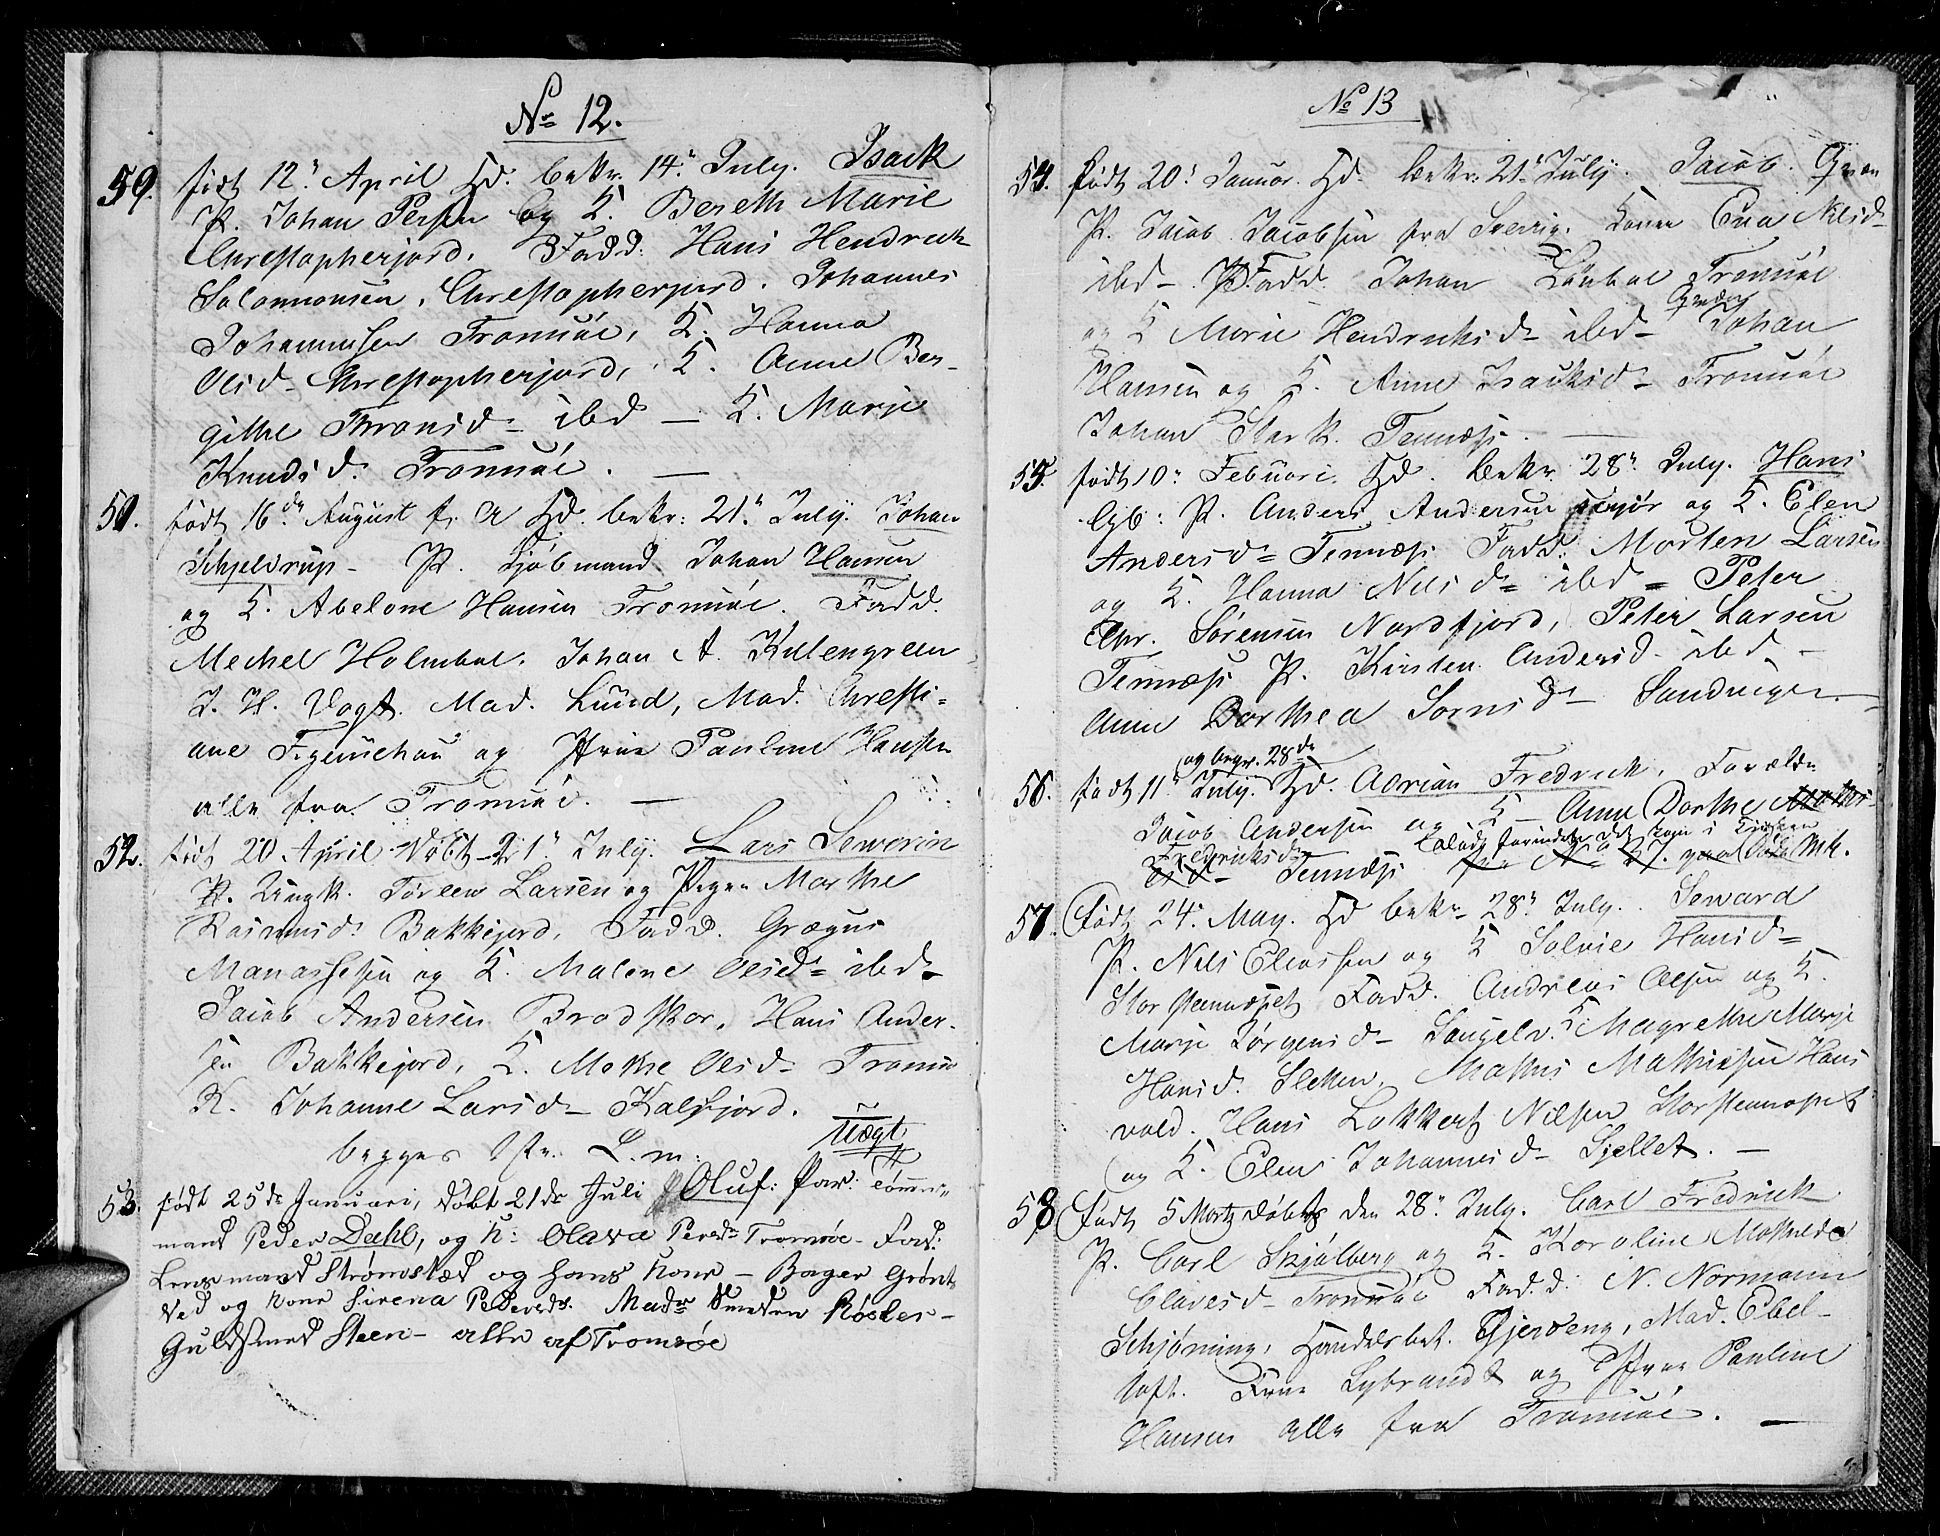 No 12.
50. født 12te April Hd. bekr. 14de July. Isack
P. Johan Persen og K. Bereth Marie
Chrestopherjord. Fadd. Hans Hendrick
Salomonsen, Chrestopherjord. Johannes
Johannesen Tromsøe, K. Hanna
Olsd- Chrestopherjord, K. Anne Ber-
githe Thronsd- ibd — K. Marje
Knudsd. Tromsøe. —
51. født 16de August f. A Hd. bekr: 21de July. Johan
Schjeldrup- P. Kjøbmand Johan Hansen
og K. Abelone Hansen Tromsøe. Fadd.
Mechel Holmboe. Johan A. Kulengreen
J. H. Vogt. Mad. Lund, Mad. Chresti=
ane Figenschou og Jfrue Pauline Hansen
alle fra Tromsøe. —
52. født 20 April Døbt 21de July. Lars Sewerin
P. Ungk. Toreen Larsen og Pigen Marthe
Rasmusd. Bakkejord, Fadd. Grægus
Manassesen og K. Malene Olsd= ibd-
Jacob Andersen Bradskor, Hans Ander-
sen Bakkejord, K. Methe Olsd- Tromsø
K. Johanne Larsd- Kalfjord.
begges 1ste L.m: Uægt
53. født 25de Januari, døbt 21de Juli Oluf: Par: Tømmer=
mand Peder Dahl, og K: Olava Persdr Tromsøe- Fad:
Lensmand Strømstæd og hans Kone — Bager Grønt
ved og Kone Sirena Pedersdr. Madm Røsles-
Guldsmed Steen- alle af Tromsøe
No 13
54. født 20de Januar. Hd. bekr: 21de July. Jacob. Qvæn
P. Jacob Jacobsen fra Sverrig. Konen Eva Nilsd-
ibd- Fadd. Johan Tromsøe
og K Marie Hendricksd- ibd- Qvæn Johan
Hansen og K. Anne Isacksd- Tromsøe
Johan Stark. Tennæss. —
55. født 10de Febuari. Hd. bekr. 28de July. Hans
P. Anders Andersen og K. Elen
Andersd= Tennæss Fadd: Morten Larsen
og K. Hanna Nilsd= ibd= Peter
Chr. Sørensen Nordfjord, Peter Larsen
Tennæss P. Kirsten Andersd- ibd-
Anne Dorthea Sørnsd- Sandvigen —
og begr. 28de
56. født 11te July. Hd. Adrian Fredrich. Forældre
Jacob Andersen og K- Anne Dorthe
Fredricksd- Tennæss
57. Født 24de May. Hd bekr- 28de July. Seward
P. Nels Eliassen og K Solvie Hansd=
Storstennæsset Fadd. Andreas Olsen og K.
Marje Jørgensd- Sougelv. K Magrethe Marje
Hansd. Sletten. Mathis Mathissen Hans
vold. Hans Lokkert Nilsen Storstennæset
og K. Elen Johannesd- Sjellet. —
58. Født 5 Marty døbt den 28de July. Carl Fredrick
P. Carl Skjølberg og K. Karoline Mathilde
Clavesd- Tromsøe Fadd: N. Normann
Schjørning, Handelsbet. Gjerveng, Mad. Ebel-
toft. Frue Lybrandt og Jfrue Pauline
Hansen alle fra Tromsøe. —